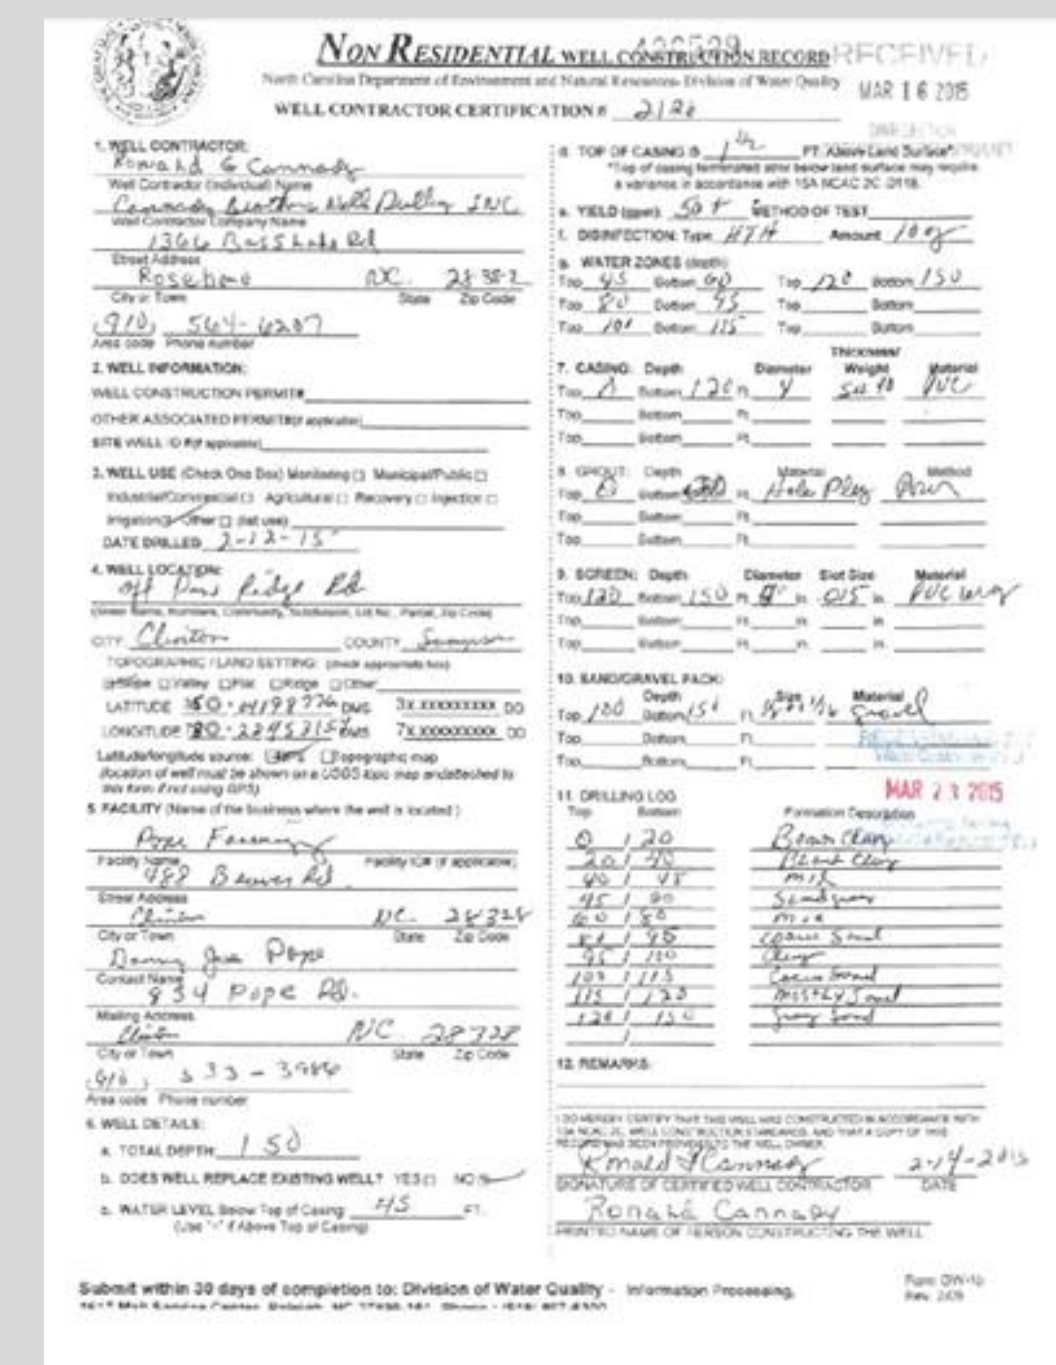 NON RESIDENTIAL WELL CONSTRUCTION RECORD
RECEIVED
North Carolina Department of Environment and Natural Resources- Division of Water Quality
MAR 16 2015
WELL CONTRACTOR CERTIFICATION #
1. WELL CONTRACTOR:
Ronald G Cannady
Well Contractor (Individual) Name
Cannady Brothers Well Drilling INC
Well Contractor Company Name
1366 Bass Lake Rd
Street Address
Roseboro NC. 28382
City or Town State Zip Code
(910) 564-6207
Area code Phone number
2. WELL INFORMATION:
WELL CONSTRUCTION PERMIT#
OTHER ASSOCIATED PERMIT#(if applicable)
SITE WELL ID #(if applicable)
3. WELL USE (Check One Box) Monitoring □ Municipal/Public □
Industrial/Commercial □ Agricultural □ Recovery □ Injection □
Irrigation □ Other □ (list use)
DATE DRILLED 2-12-15
4. WELL LOCATION:
off Ridge Rd
(Street Name, Numbers, Community, Subdivision, Lot No., Parcel, Zip Code)
CITY: Clinton COUNTY Sampson
TOPOGRAPHIC / LAND SETTING: (check appropriate box)
□ Slope □ Valley □ Flat □ Ridge □ Other
LATITUDE DMS 3X.XXXXXXXXX DD
LONGITUDE DMS 7X.XXXXXXXXX DD
Latitude/longitude source: □ GPS □ Topographic map
(location of well must be shown on a USGS topo map and attached to
this form if not using GPS)
5. FACILITY (Name of the business where the well is located.)
Pope Farming
Facility Name Facility ID# (if applicable)
488 Beaver Rd
Street Address
Clinton NC. 28328
City or Town State Zip Code
Danny Joe Pope
Contact Name
834 Pope Rd.
Mailing Address
Clinton NC 28328
City or Town State Zip Code
(910) 533-3986
Area code Phone number
6. WELL DETAILS:
a. TOTAL DEPTH: 150
b. DOES WELL REPLACE EXISTING WELL? YES □ NO □
c. WATER LEVEL Below Top of Casing: 45 FT.
(Use "+" if Above Top of Casing)
d. TOP OF CASING IS 1 1/2 FT. Above Land Surface*
*Top of casing terminated at/or below land surface may require
a variance in accordance with 15A NCAC 2C .0118.
e. YIELD (gpm): 50+ METHOD OF TEST
f. DISINFECTION: Type HTH Amount 10 oz
g. WATER ZONES (depth):
Top 45 Bottom 60 Top 120 Bottom 150
Top 80 Bottom 95 Top Bottom
Top 101 Bottom 115 Top Bottom
Thickness/
7. CASING: Depth Diameter Weight Material
Top 0 Bottom 120 Ft. 4 Sch 40 PVC
Top Bottom Ft.
Top Bottom Ft.
8. GROUT: Depth Material Method
Top 0 Bottom Ft. Hole Plug Pour
Top Bottom Ft.
Top Bottom Ft.
9. SCREEN: Depth Diameter Slot Size Material
Top 120 Bottom 150 Ft. in. .015 in. PVC
Top Bottom Ft. in. in.
Top Bottom Ft. in. in.
10. SAND/GRAVEL PACK:
Depth Size Material
Top 100 Bottom 150 Ft. Gravel
Top Bottom Ft.
Top Bottom Ft.
MAR 23 2015
11. DRILLING LOG
Top Bottom Formation Description
0 / 20 Brown Clay
20 / 40 Black Clay
40 / 45 mix
45 / 60
60 / 80 mix
80 / 95 coarse Sand
95 / 100 Clay
/ 115 Coarse Sand
115 / 120 mostly Sand
120 / 150 Gray Sand
/
12. REMARKS:
I DO HEREBY CERTIFY THAT THIS WELL WAS CONSTRUCTED IN ACCORDANCE WITH
15A NCAC 2C, WELL CONSTRUCTION STANDARDS, AND THAT A COPY OF THIS
RECORD HAS BEEN PROVIDED TO THE WELL OWNER.
Ronald Cannady 2-14-2015
SIGNATURE OF CERTIFIED WELL CONTRACTOR DATE
Ronald Cannady
PRINTED NAME OF PERSON CONSTRUCTING THE WELL
Submit within 30 days of completion to: Division of Water Quality - Information Processing,
Form GW-1b
Rev. 2/09